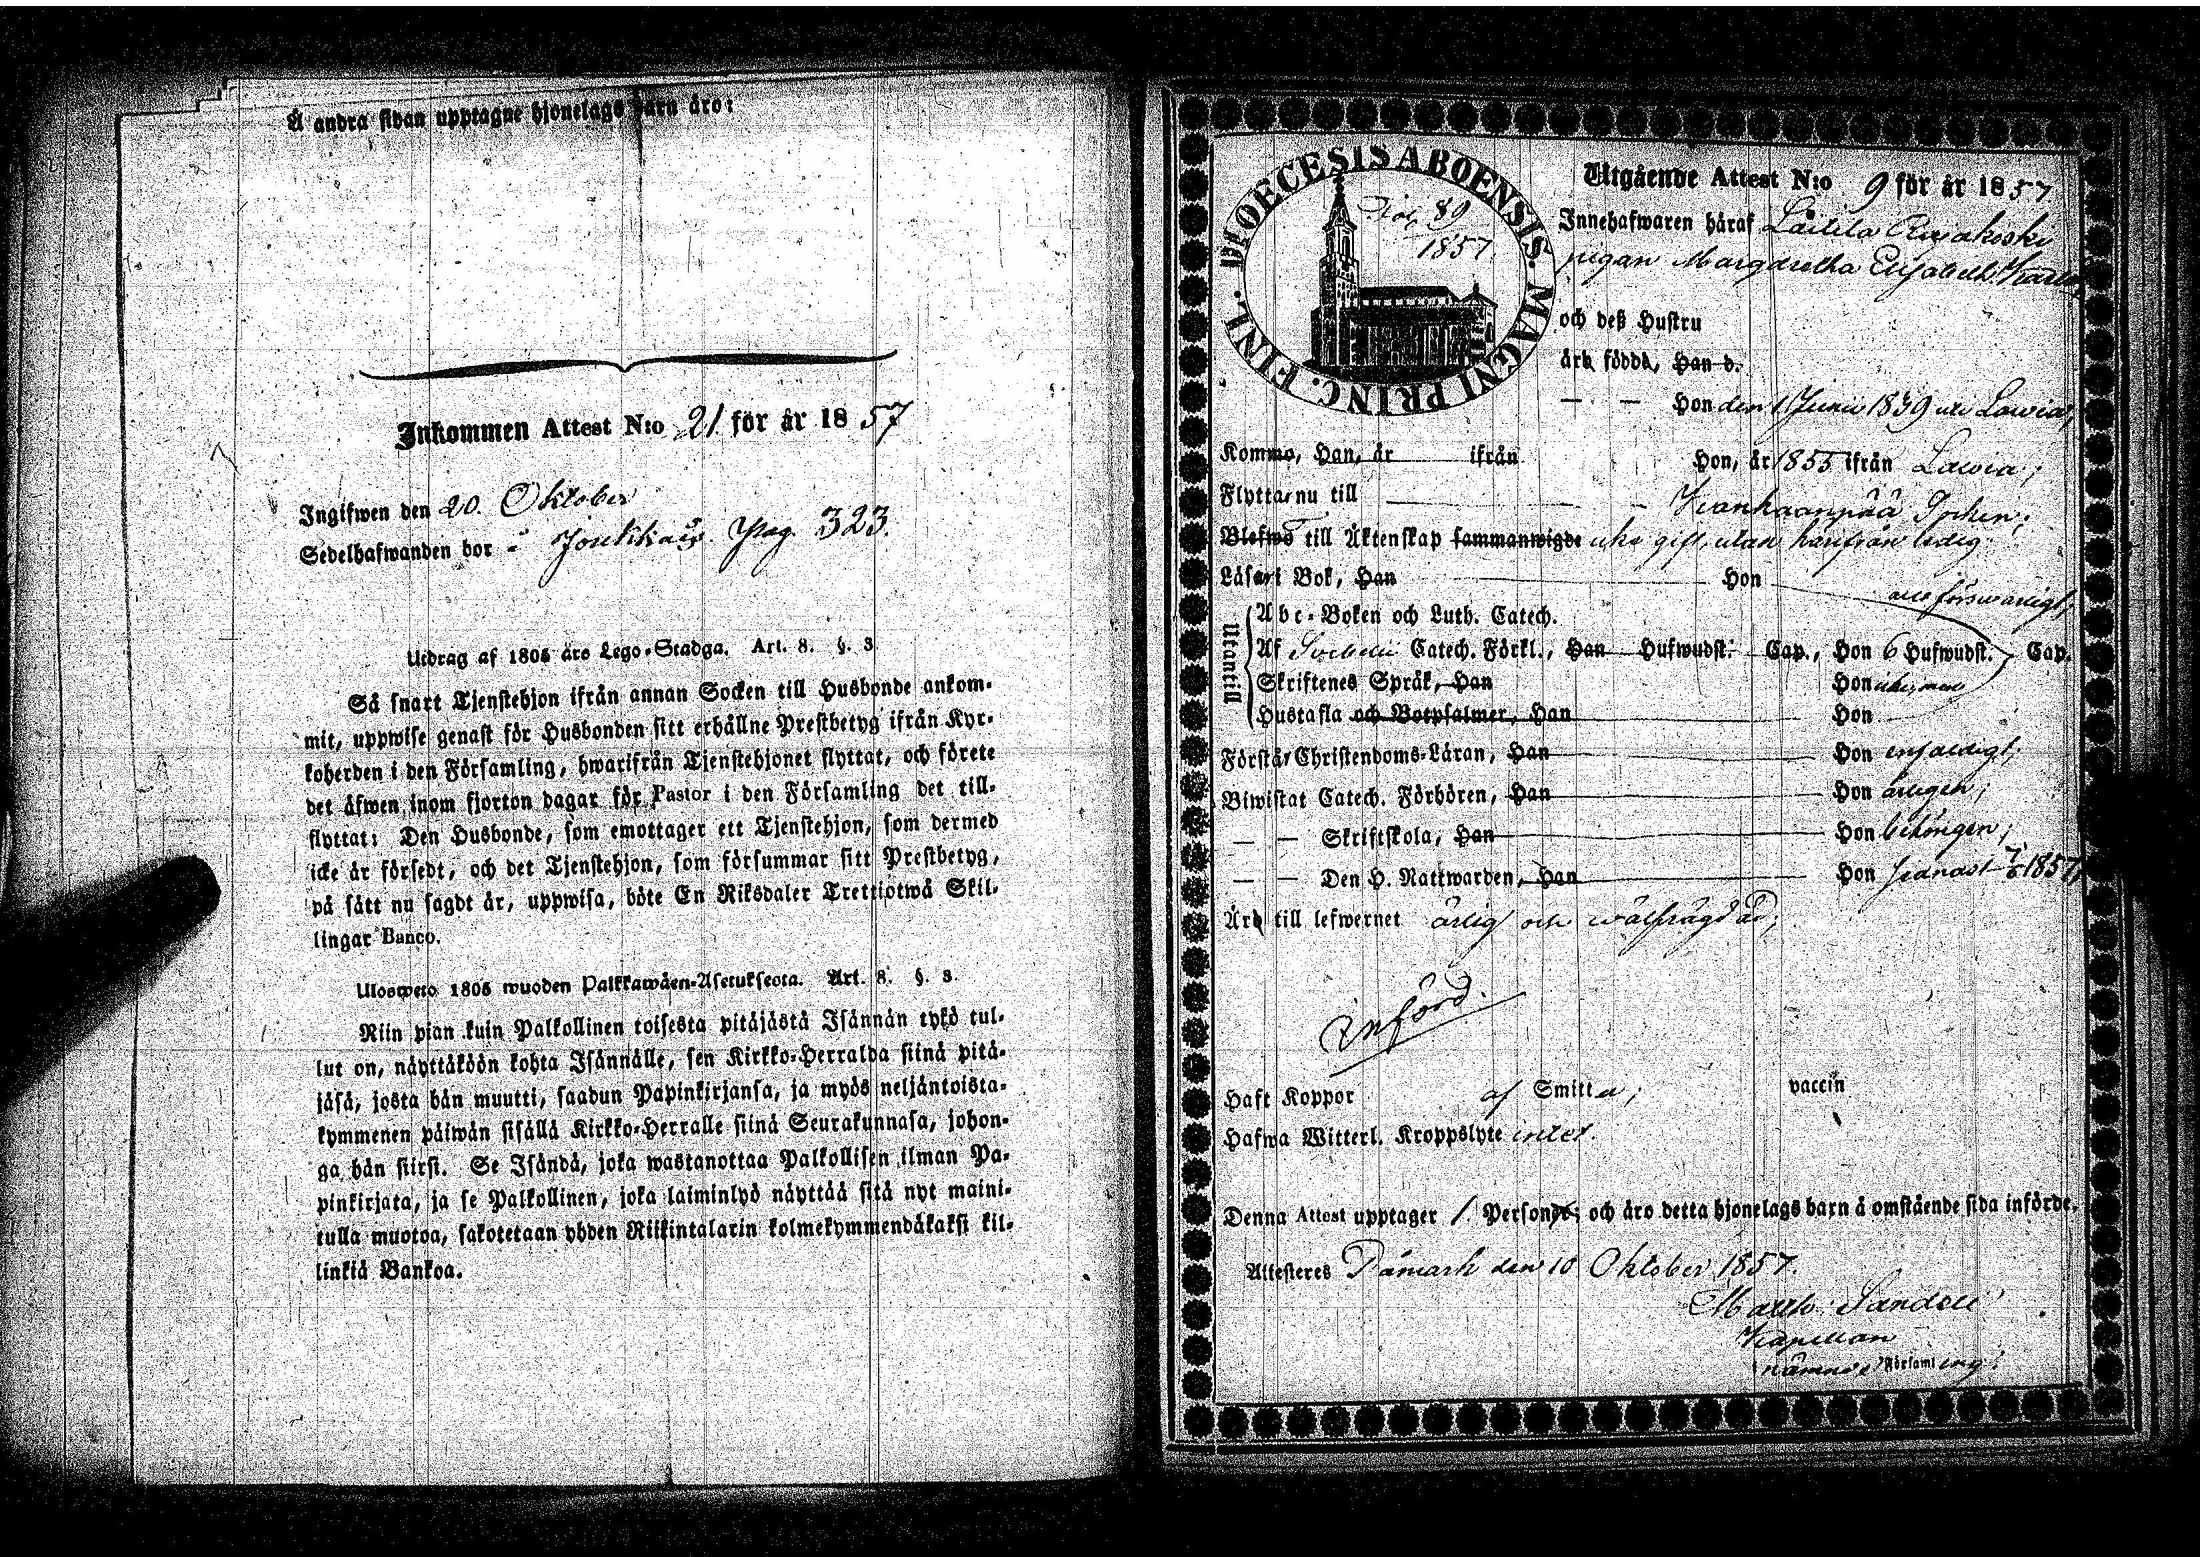 Å andra sidan upptagne hjonelags barn äro:
Inkommen Attest N:o 21 för år 1857
Ingifwen den 20. Oktober
Sedelhafwanden bor Pag. 323.
Utdrag af 1805 års Lego-Stadga. Art. 8. §. 3
Så snart Tjenstehjon ifrån annan Socken till Husbonde ankom-
mit, uppwise genast för Husbonden sitt erhållne Prestbetyg ifrån Kyr-
koherden i den Församling, hwarifrån Tjenstehjonet flyttat, och förete
det äfwen inom fjorton dagar för Pastor i den Församling det till-
flyttat: Den Husbonde, som emottager ett Tjenstehjon, som dermed
icke är försedt, och det Tjenstehjon, som försummar sitt Prestbetyg,
på sätt nu sagdt är, uppwisa, böte En Riksdaler Trettiotwå Skil-
lingar Banco.
Ulosweto 1805 wuoden Palkkawäen-Asetuksesta. Art. 8. §. 3.
Niin pian kuin Palkollinen toisesta pitäjästä Isännän tykö tul-
lut on, näyttäköön kohta Isännälle, sen Kirkko-Herralda siinä pitä-
jäsä, josta hän muutti, saadun Papinkirjansa, ja myös neljäntoista-
kymmenen päiwän sisällä Kirkko-Herralle siinä Seurakunnasa, johon-
ga hän siirsi. Se Isändä, joka wastanottaa Palkollisen ilman Pa-
pinkirjata, ja se Palkollinen, joka laiminlyö näyttää sitä nyt maini-
tulla muotoa, sakotetaan yhden Riikintalarin kolmekymmendäkaksi kil-
linkiä Bankoa.
DIOECESIS ABOENSIS. MAGNI PRINC. FINL.
89
1857.
Utgående Attest N:o 9 för år 1857
Innehafwaren häraf
pigan Margaretha Elisabeth
och deß Hustru
äro födde, Han d.
— — Hon den 1 Junii 1839 uti Lavia,
Kommo, Han, år ifrån Hon, år 1855 ifrån Lavia;
Flytta nu till Kankaanpää Socken;
Blefwo till Äktenskap sammanwigde icke gift, utan härifrån ledig
Läsa i Bok, Han Hon försvarligt,
Utantill
Abc-Boken och Luth. Catech.
Af Catech. Förkl., Han Hufwudst. Cap., Hon 6 Hufwudst. Cap.
Skriftenes Språk, Han Hon
Hustafla och Botpsalmer, Han Hon
Förstå Christendoms-Läran, Han Hon enfaldigt;
Biwistat Catech. Förhören, Han Hon årligen;
— — Skriftskola, Han Hon behörigen;
— — Den H. Nattwarden, Han Hon sednast 1857,
Äro till lefwernet ärlig och välfrägdad;
Införd.
Haft Koppor af Smitta; vaccin
Hafwa Witterl. Kroppslyte intet.
Denna Attest upptager 1. Personer och äro detta hjonelags barn å omstående sida införde.
Attesteres Påmark den 10 Oktober 1857.
Sandell
Kapellan
nämnde Församling.